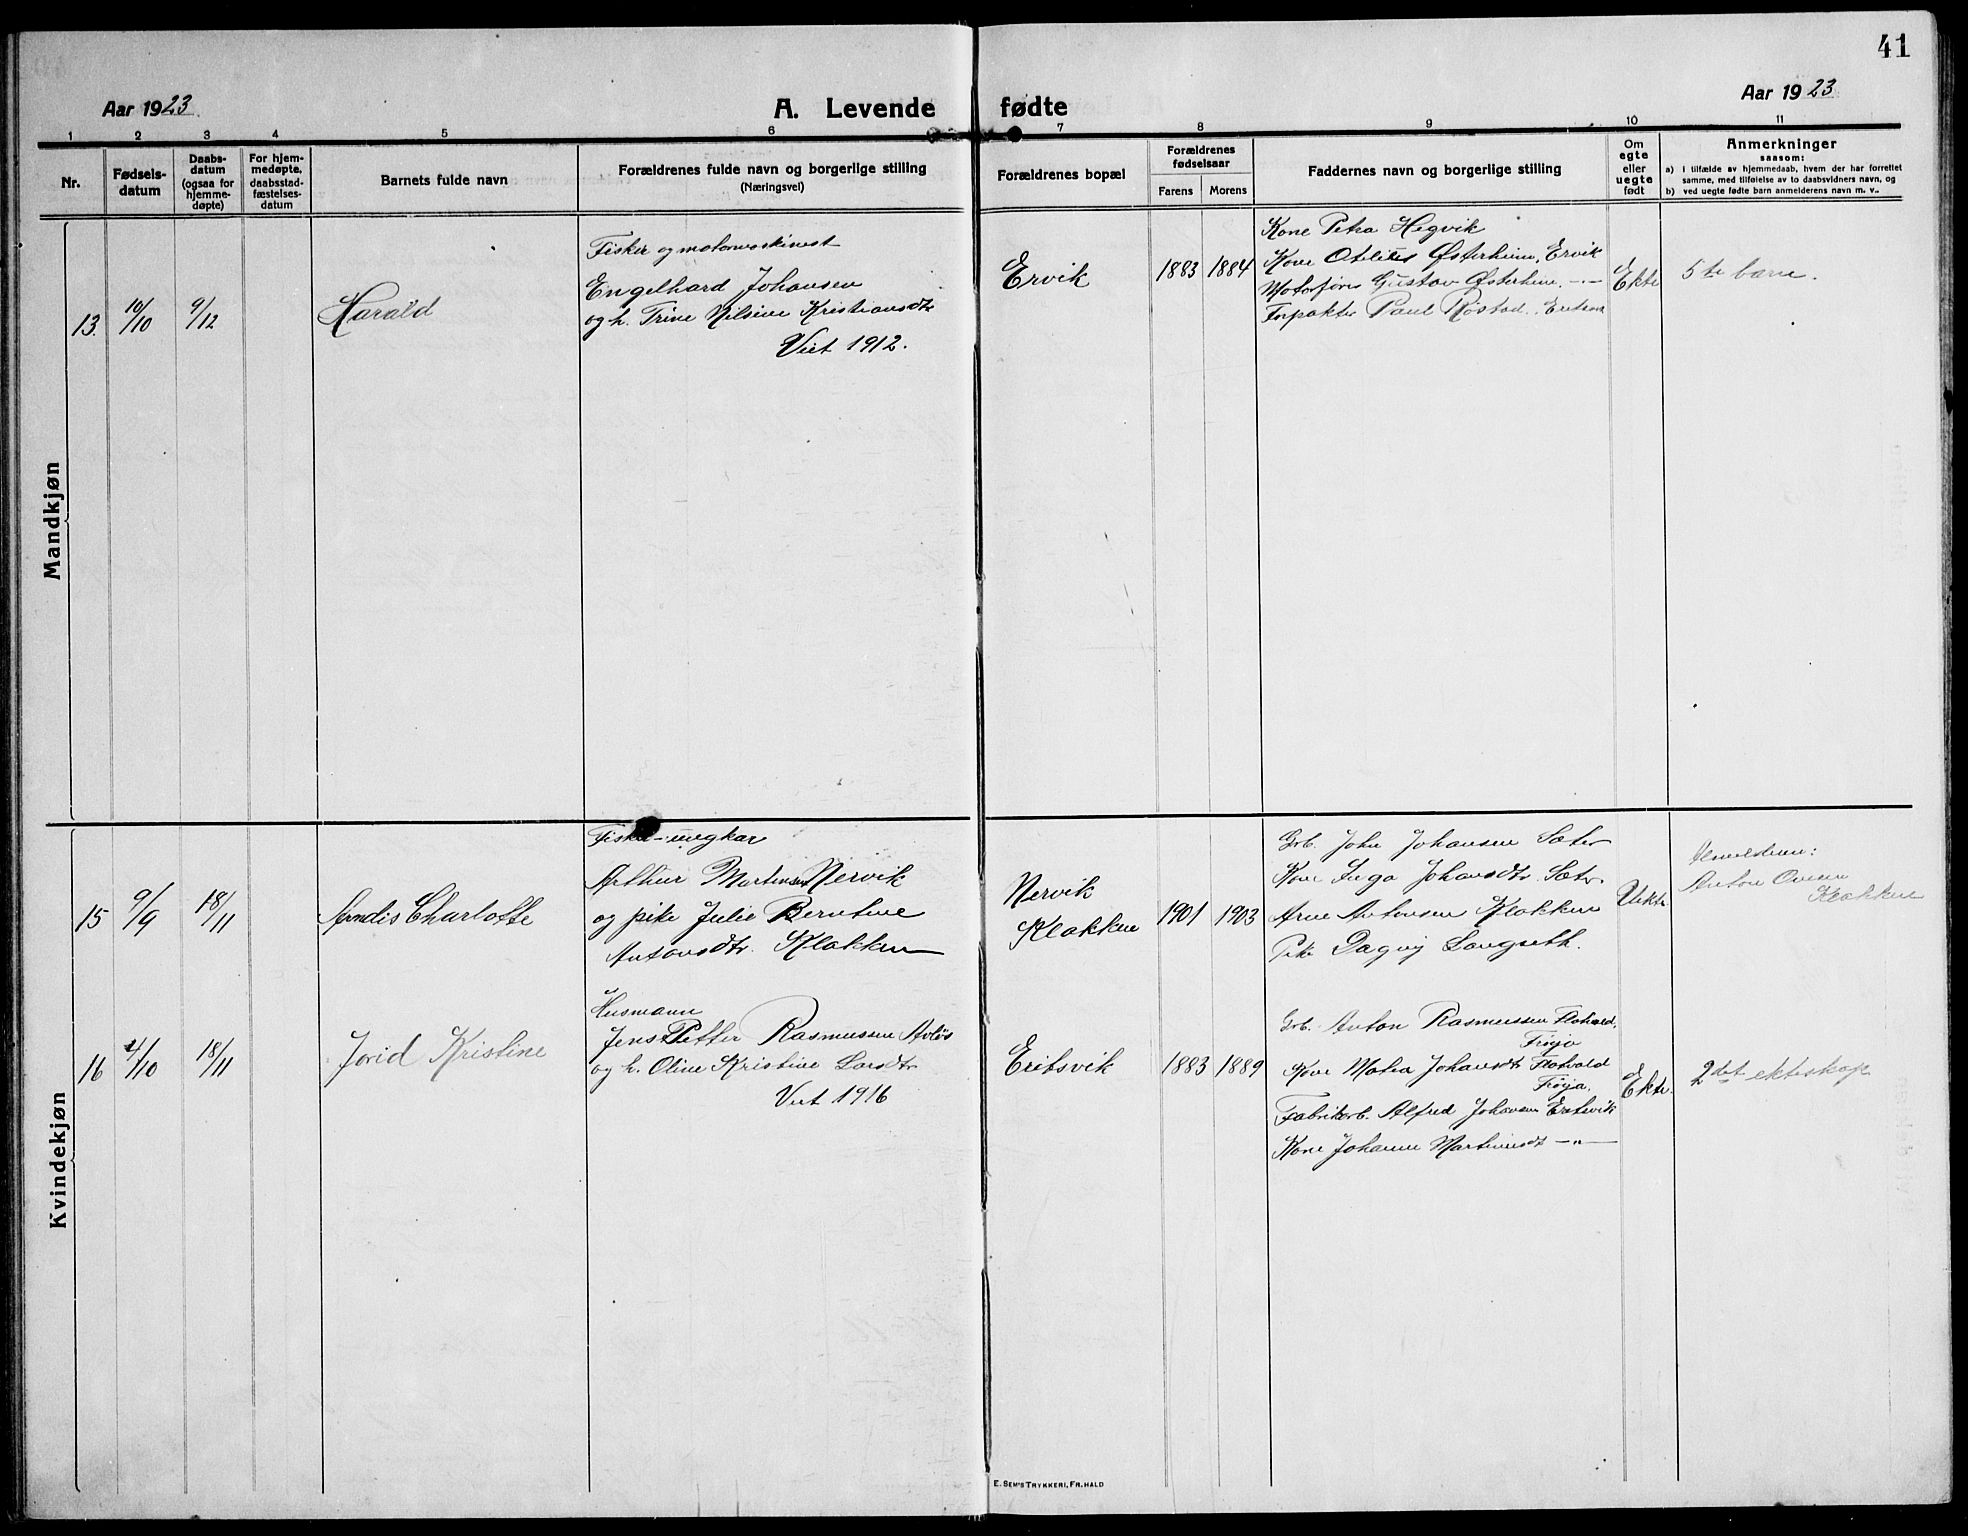 41
Aar 1923
A. Levende fødte
Aar 1923
1 2 3 4 5 6 7 8 9 10 11
Nr.
Fødsels-
datum
Daabs-
datum
(ogsaa for
hjemme-
døpte)
For hjem-
medøpte,
daabsstad-
fæstelses-
datum
Barnets fulde navn
Forældrenes fulde navn og borgerlige stilling
(Næringsvei)
Forældrenes bopæl
Forældrenes
fødselsaar
Farens Morens
Faddernes navn og borgerlige stilling
Om
egte
eller
uegte
født
Anmerkninger
saasom:
a) I tilfælde av hjemmedaab, hvem der har forrettet
samme, med tilføielse av to daabsvidners navn, og
b) ved uegte fødte barn anmelderens navn m. v..
Mandkjøn
13.
10/10
9/12
Harald
Fisker og motormaskinist
Engelhard Johansen
og h. Trine Nilsine Kristiansdtr
Viet 1912.
Ervik
1883 1884
Kone Petra Hegvik
Kone Østerheim, Ervik
Gustav Østerheim. -"-
Forpakter Paul Røstad.
Ekte
5te barn.
Kvindekjøn
15
9/9
18/11
Arndis Charlotte
Fisker-ungkar
Arthur Martinsen Nervik
og pike Julie Berntine
Antonsdtr. Klakken
Nervik
Klakken
1901 1903
Grb. John Johansen Sæter
Kone Inga Johansdtr Sæter.
Arne Antonsen Klakken
Pike Dagny Langseth.
Uekte
Anmelderen:
Anton Olsen
Klakken
16
4/10
18/11
Jorid Kristine
Husmann
Jens Petter Rasmussen
og h. Oline Kristine Larsdtr
Viet 1916
Eritsvik
1883 1889
Grb. Anton Rasmussen Flatvald,
Frøya
Kone Johansdtr Flatvald
Frøya.
Fabrikarb. Alfred Johansen
Kone Johanne -"-
Ekte.
2det ekteskap
E. Sem's Trykkeri, Fr.hald